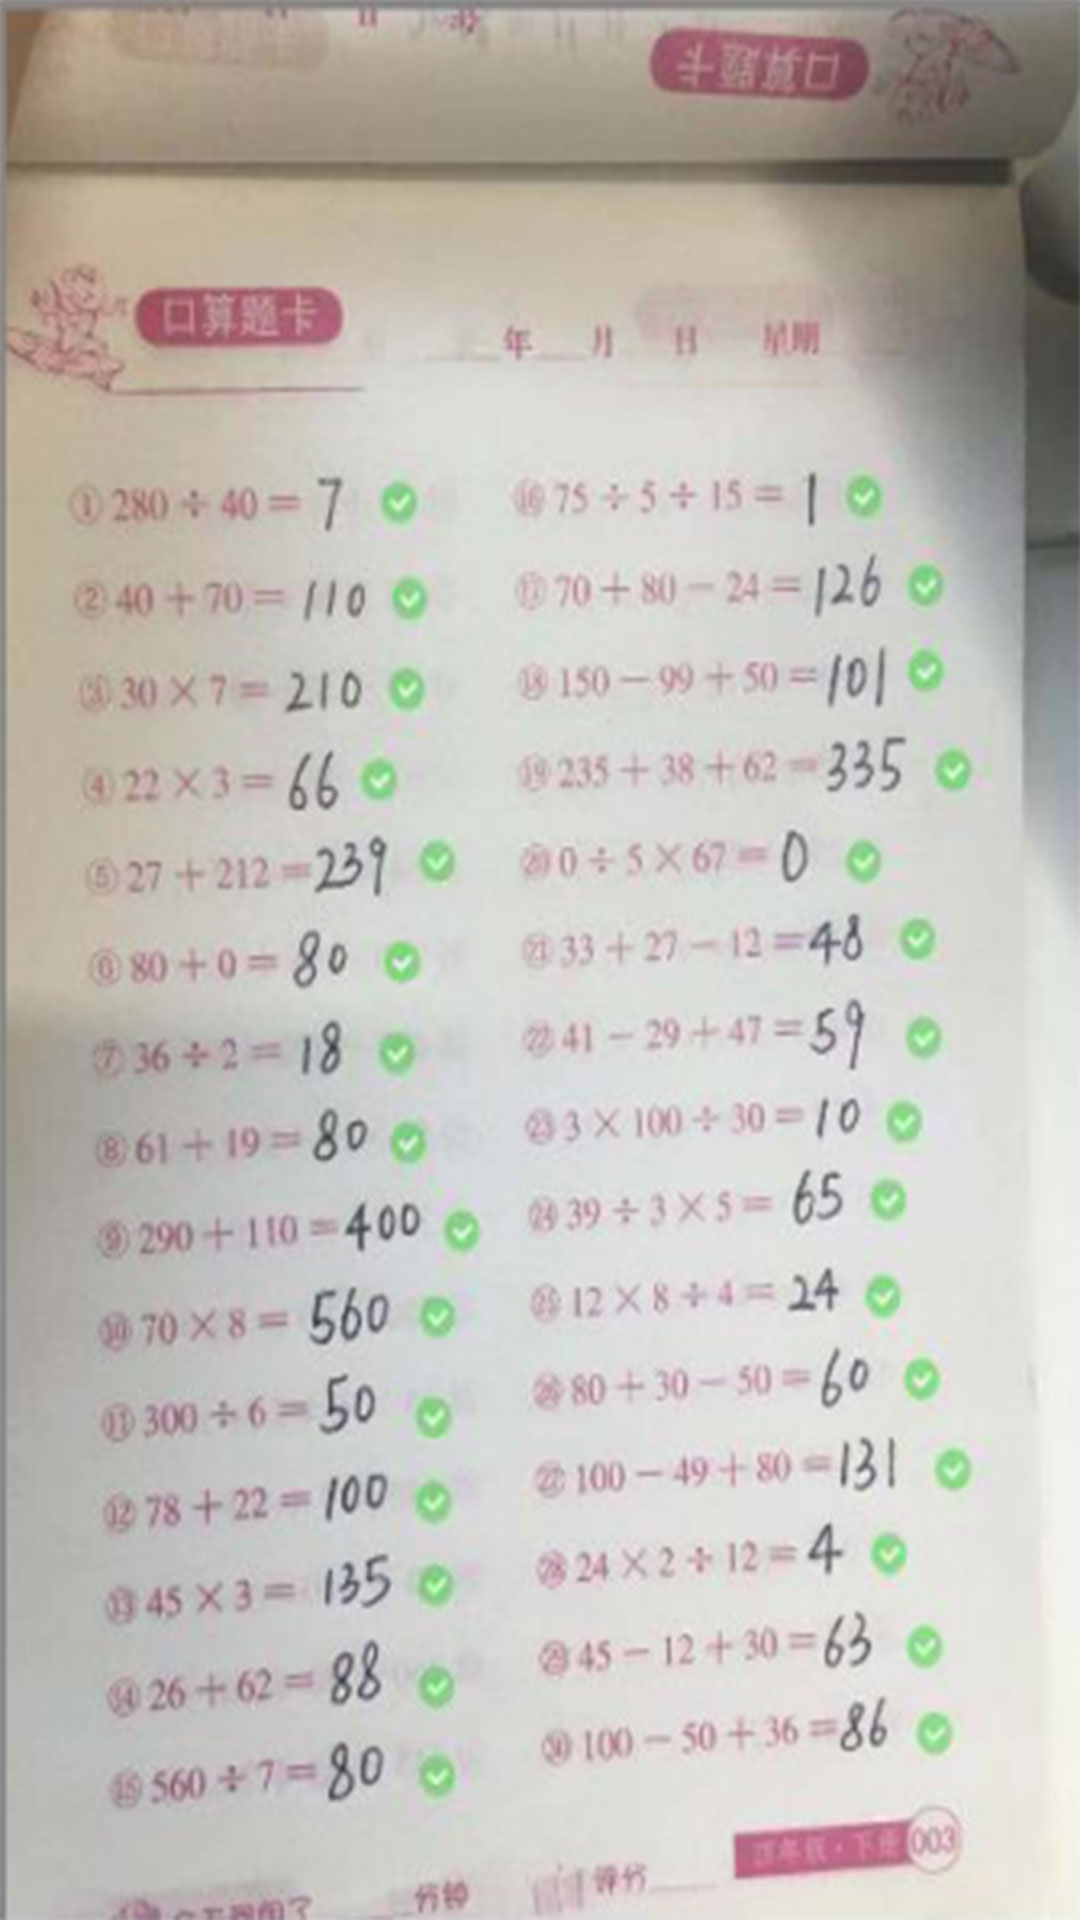 口算题卡
口算题卡
年 月 日 星期
①280÷40=7
②40+70=110
③30×7=210
④22×3=66
⑤27+212=239
⑥80+0=80
⑦36÷2=18
⑧61+19=80
⑨290+110=400
⑩70×8=560
⑪300÷6=50
⑫78+22=100
⑬45×3=135
⑭26+62=88
⑮560÷7=80
⑯75÷5÷15=1
⑰70+80-24=126
⑱150-99+50=101
⑲235+38+62=335
⑳0÷5×67=0
㉑33+27-12=48
㉒41-29+47=59
㉓3×100÷30=10
㉔39÷3×5=65
㉕12×8÷4=24
㉖80+30-50=60
㉗100-49+80=131
㉘24×2÷12=4
㉙45-12+30=63
㉚100-50+36=86
四年级·下册 003
分钟 评分